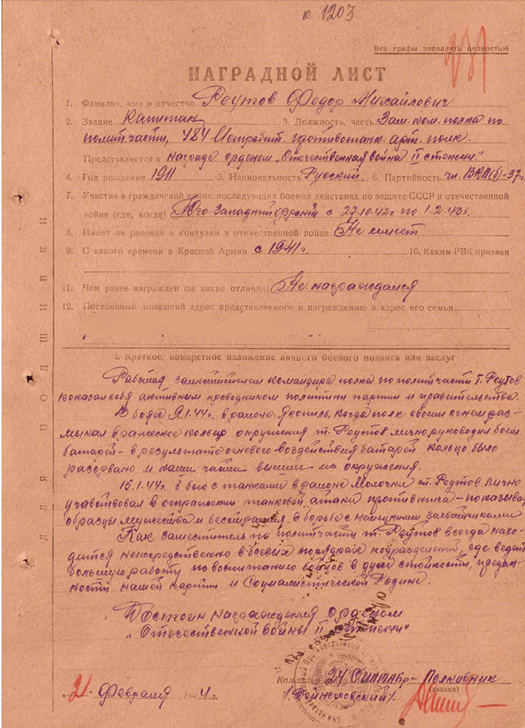 о 1203
Все графы заполнять полностью
НАГРАДНОЙ ЛИСТ
1. Фамилия, имя и отчество Реутов Федор Михайлович
2. Звание Капитан 3. Должность, часть Зам. ком. полка по
политчасти, Истребит. противотанк арт. полк.
Представляется к награде орденом „Отечественная война II степени"
4. Год рождения 1911 5. Национальность Русский 6. Партийность чл. ВКП(б)-37г
7. Участие в гражданской войне, последующих боевых действиях по защите СССР и отечественной
войне (где, когда) Юго-Западный фронт с 27.10.42г. по 1.2.43г.
8. Имеет ли ранения и контузии в отечественной войне Не имеет
9. С какого времени в Красной Армии с 1941г. 10. Каким РВК призван
11. Чем ранее награжден (за какие отличия) Не награждался
12. Постоянный домашний адрес представляемого к награждению и адрес его семьи
Для подшивки
I. Краткое, конкретное изложение личного боевого подвига или заслуг
Работая заместителем командира полка по политчасти т. Реутов
показал себя активным проводником политики партии и правительства.
В боях 9.1.44г. в районе когда полк своим огнем раз-
мыкал вражеское кольцо окружения т. Реутов лично руководил боем
батарей - в результате огневого воздействия батарей кольцо было
разорвано и наши части вышли из окружения.
15.1.44г. в бою с танками в районе Молочки т. Реутов лично
участвовал в отражении танковой атаки противника - показывая
образцы мужества и бесстрашия в борьбе с немецкими захватчиками.
Как заместитель по политчасти т. Реутов всегда нахо-
дится непосредственно в боевых порядках подразделений, где ведет
большую работу по воспитанию бойцов в духе стойкости, предан-
ности нашей партии и Социалистической Родине.
Достоин награждения орденом
„Отечественной войны II степени"
24 ИПТАБР - Полковник
(звание)
21 Февраля 1944г.